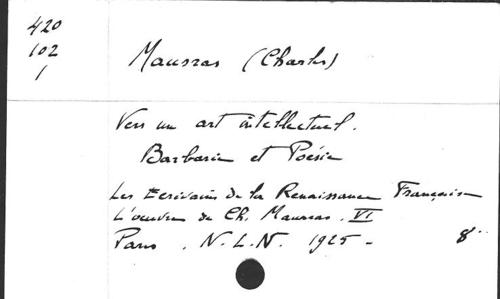 420
102
1
Maurras (Charles)
Vers un art intellectuel.
Barbarie et Poésie
Les Ecrivains de la Renaissance Française
L'oeuvre de Ch. Maurras. VI
Paris. N.L.N. 1925 - 8°